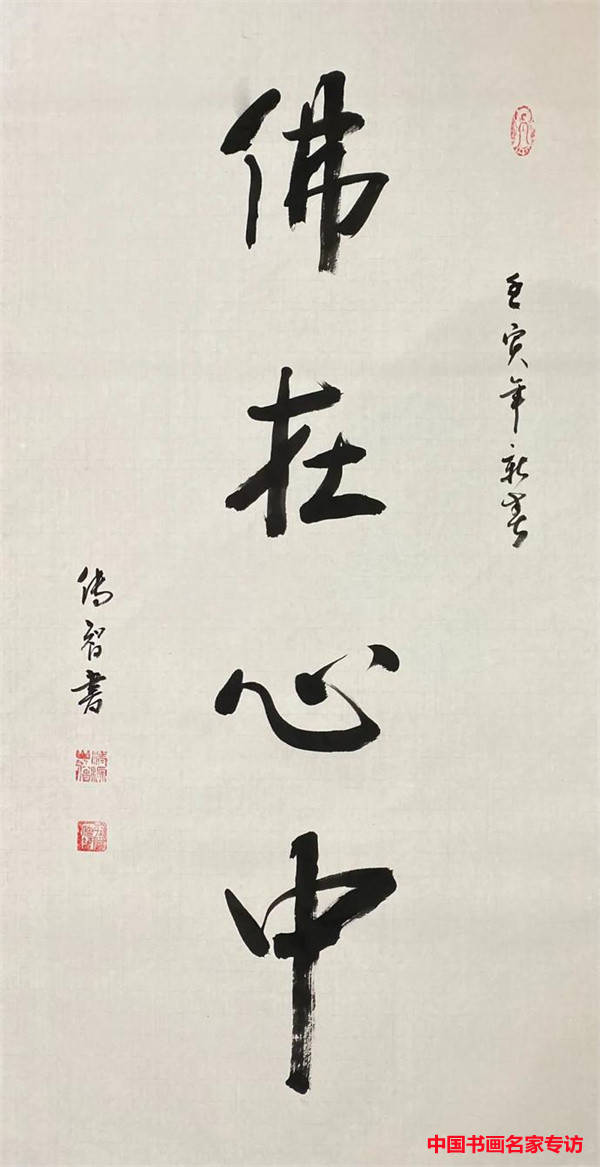 壬寅年新春
佛在心中
傳智書
中国书画名家专访